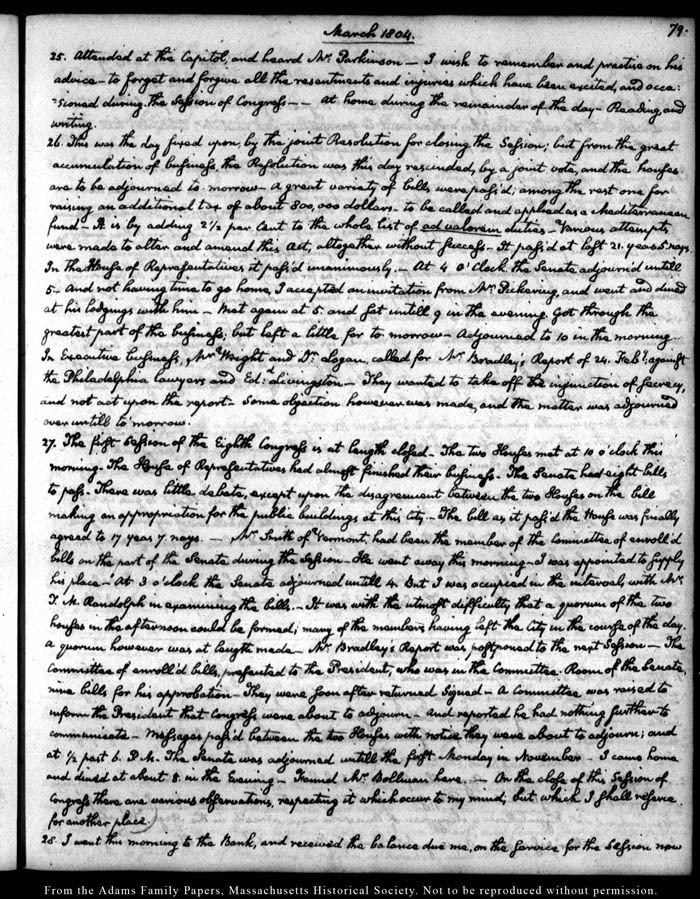 March 1804.
79.
25. Attended at the Capitol, and heard Mr. Parkinson — I wish to remember and practise on his
advice — to forget and forgive all the resentments and injuries which have been excited, and occa:
:sioned during the Session of Congress — — At home during the remainder of the day — Reading, and
writing.
26. This was the day fixed upon, by the joint Resolution for closing the Session; but from the great
accumulation of business, the Resolution was this day rescinded, by a joint vote, and the houses
are to be adjourned to-morrow — A great variety of bills were pass'd; among the rest one for
raising an additional tax of about 800,000 dollars — to be called and applied as a Mediterranean
fund — It is by adding 2½ per Cent to the whole list of ad valorem duties — Various attempts
were made to alter and amend this Act, altogether without success — It pass'd at last 21. yeas 5. nays.
In the House of Representatives it pass'd unanimously. — At 4 O'Clock the Senate adjourn'd untill
5 — And not having time to go home, I accepted an invitation from Mr. Pickering, and went and dined
at his lodgings with him — Met again at 5. and sat untill 9 in the evening. Got through the
greatest part of the business; but left a little for to morrow — Adjourned to 10 in the morning —
In Executive business, Mr. Wright and Dr. Logan, called for Mr. Bradley's Report of 24. Feby. against
the Philadelphia lawyers and Ed:d Livingston — They wanted to take off the injunction of secrecy,
and not act upon the report — Some objection however was made, and the matter was adjourned
over untill to morrow.
27. The first Session of the Eighth Congress is at length closed — The two Houses met at 10 o'clock this
morning — The House of Representatives had almost finished their business — The Senate had eight bills
to pass — There was little debate, except upon the disagreement between the two Houses on the bill
making an appropriation for the public buildings at this City — The bill as it pass'd the House was finally
agreed to 17 yeas 7. nays. — Mr. Smith of Vermont, had been the member of the Committee of enroll'd
bills on the part of the Senate during the Session — He went away this morning — I was appointed to supply
his place — At 3 o'clock the Senate adjourned untill 4. But I was occupied in the interval, with Mr.
T. M. Randolph in examining the bills. — It was with the utmost difficulty that a quorum of the two
houses in the afternoon could be formed; many of the members having left the City in the course of the day.
A quorum however was at length made — Mr. Bradley's Report was postponed to the next Session — The
Committee of enroll'd bills, presented to the President, who was in the Committee-Room of the Senate,
nine bills for his approbation — They were soon after returned signed — A Committee was raised to
inform the President that Congress were about to adjourn — And reported he had nothing further to
communicate — Messages pass'd between the two Houses with notice they were about to adjourn; and
at ½ past 6. P.M. The Senate was adjourned untill the first Monday in November — I came home
and dined at about 8. in the Evening — Found Mr. Bollman here. — On the close of this Session of
Congress there are various observations, respecting it which occur to my mind, but which I shall reserve
for another place.
28. I went this morning to the Bank, and received the balance due me, on the service for the Session now
From the Adams Family Papers, Massachusetts Historical Society. Not to be reproduced without permission.